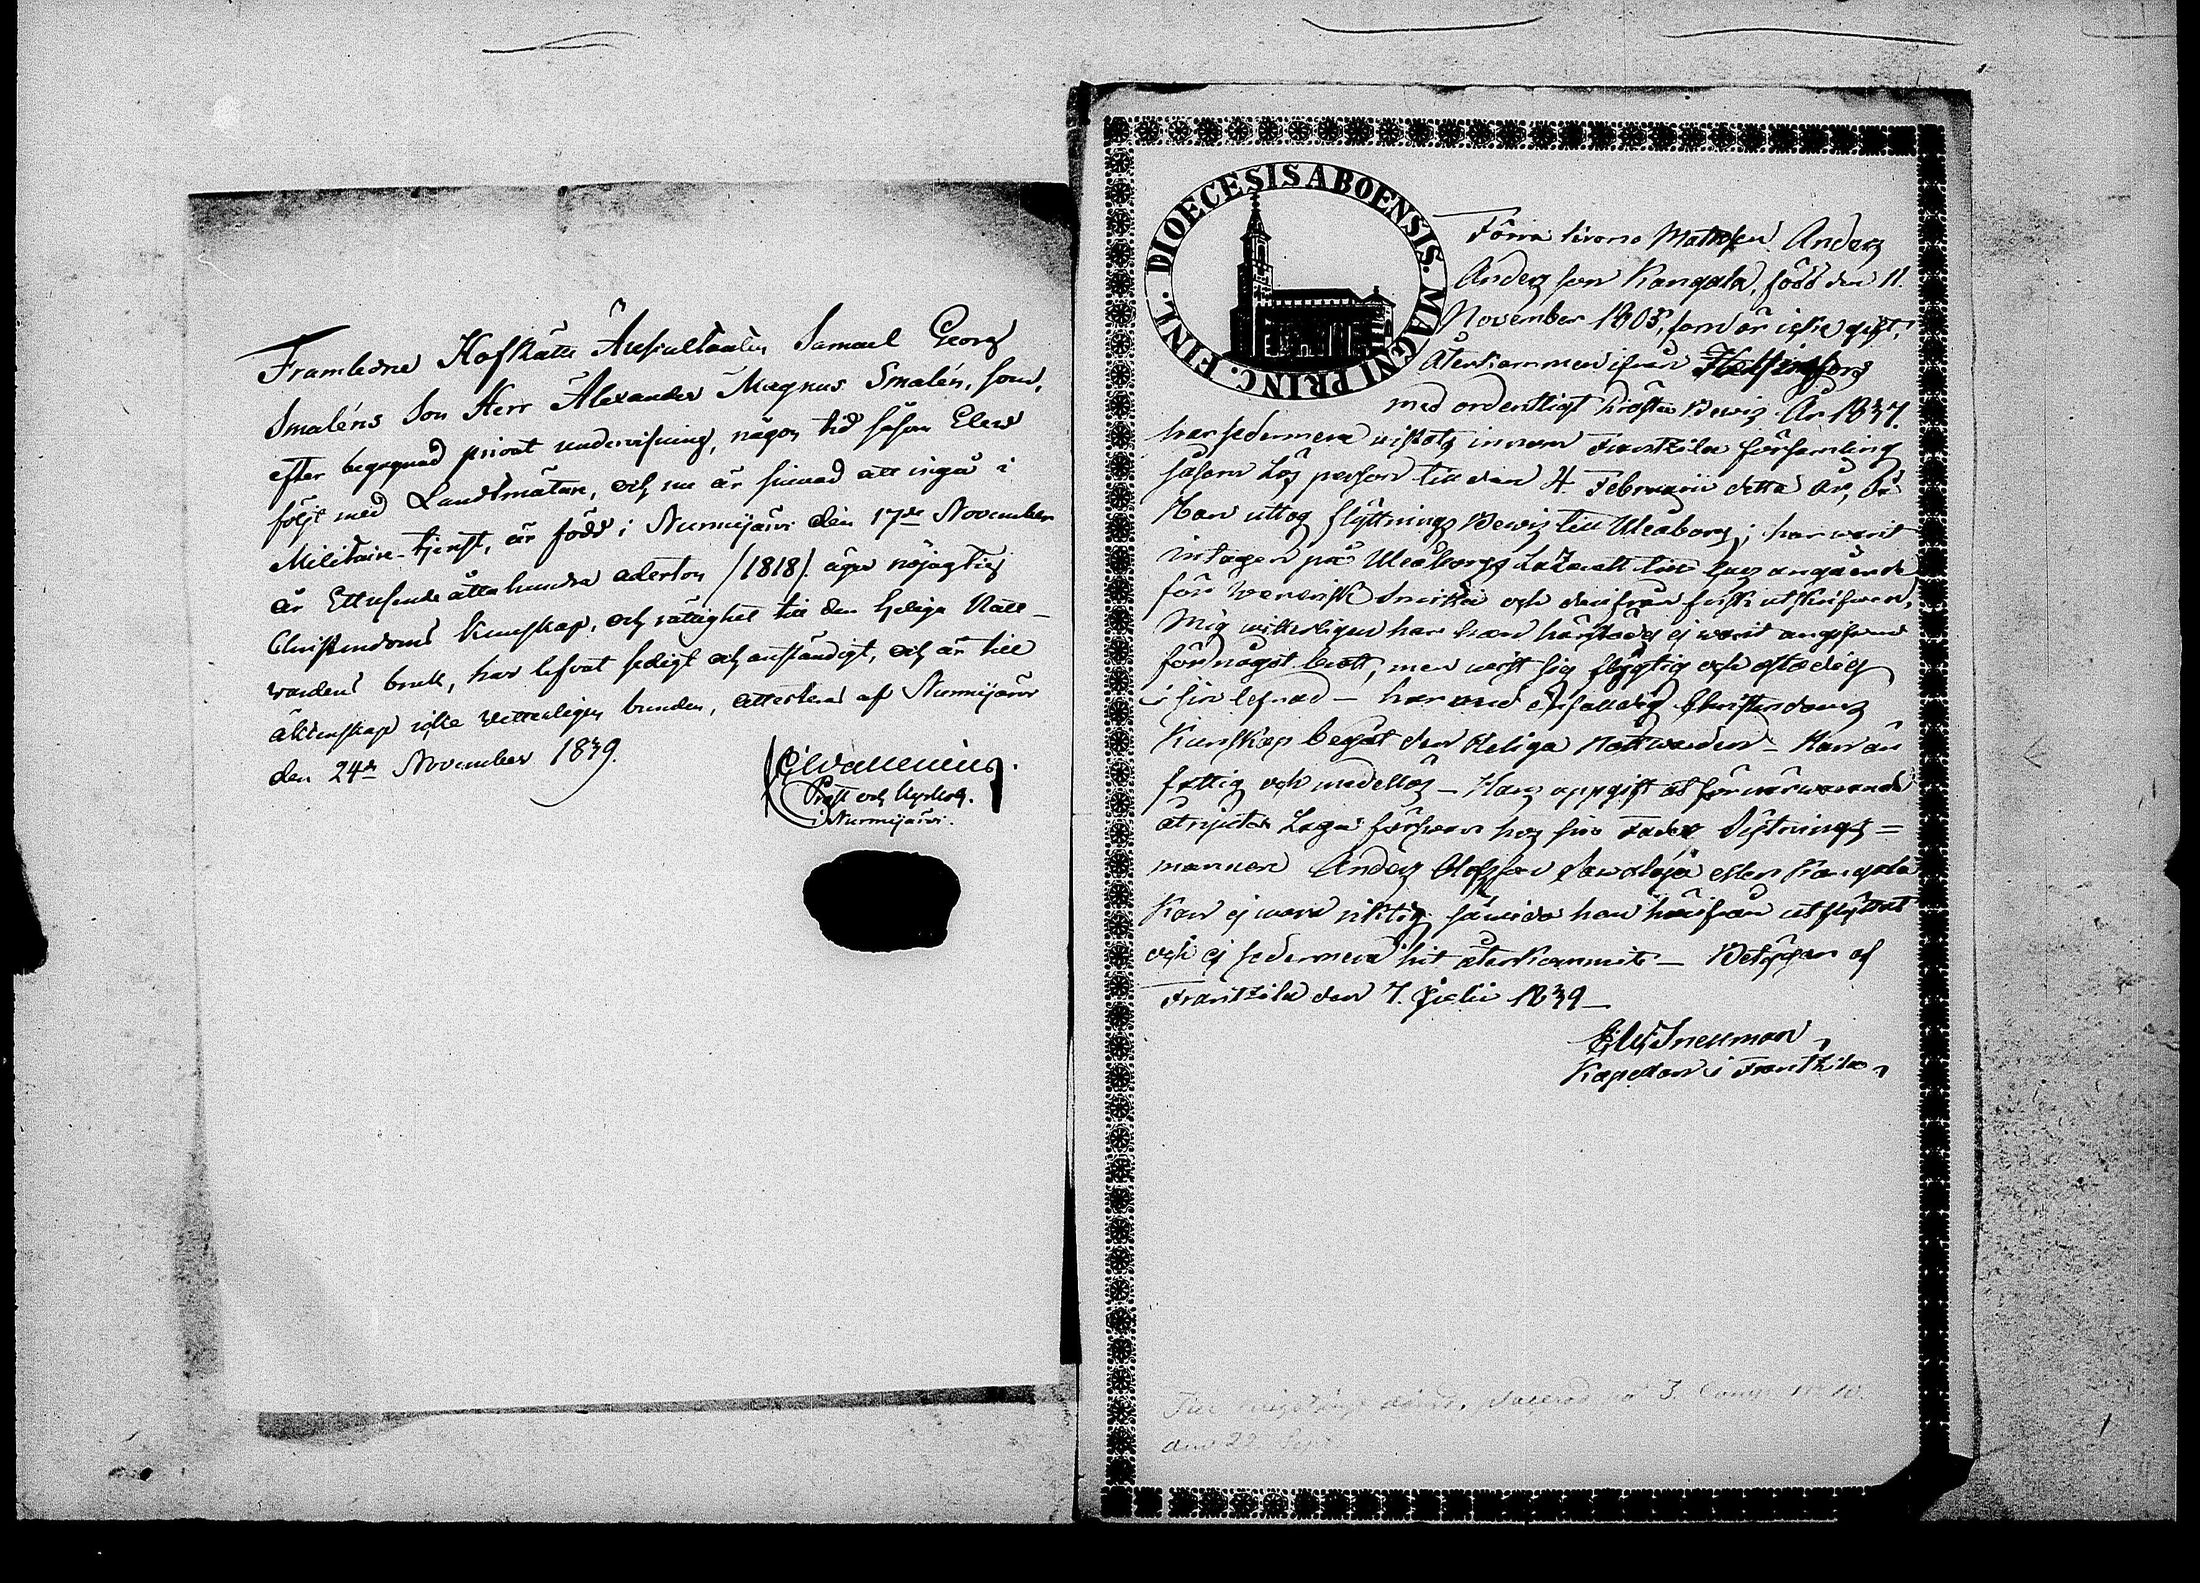 Framledne Hofrätts Auscultanten Samuel Georg
Smaléns Son Herr Alexander Magnus Smalén, som,
efter begagnad privat undervisning, någon tid såsom Elev
följt med Landtmätare, och nu är sinnad att ingå i
Militaire-tjenst, är född i Nurmijärvi den 17de November
år Ettusendeåttahundra aderton /1818/. äger nöjagtig
Christendoms kunskap, och rättighet till den heliga Natt-
vardens bruk, har lefvat sedigt och anständigt, och är till
äktenskap icke vetterligen bunden, attesteras af Nurmijärvi
den 24de November 1839.
Wallenius.
Prost och Kyrkoh.
i Nurmijärvi.
DIOECESIS ABOENSIS. MAGNI PRINC. FINL.
Förra Matrosen Anders
Andersson Kangala, född den 11.
November 1805, som är icke gift,
Återkommen ifrån Helsingfors
med ordentligt Prästbewis År 1837.
har sedermera wistats innom Frantzila församling
såsom Lös person till den 4. Februarii detta År, då
Han uttog flyttnings Bewis till Uleåborg; har warit
intagen på Uleåborgs Lazarett
för Wenerisk Smitta och derifrån frisk utskrifwen.
Mig witterligen har han härstädes ej warit angifwen
för något brott, men wist sig flygtig och ostadig
i sin lefnad – har med enfaldig Christendoms
Kunskap begått den Heliga Nattwarden – Han är
fattig och medellös – Hans uppgift at förnärwarande
åtnjuta Laga förswar hos sin Fader Sytnings=
mannen Anders Olofsson eller Kangala
Kan ej wara riktig, såwida han härifrån utflyttat
och ej sedermera hit återkommit – Betygar af
Frantzila den 7. Julii 1839 –
Snellman
Kapellan i Frantzila
den 22 Sept